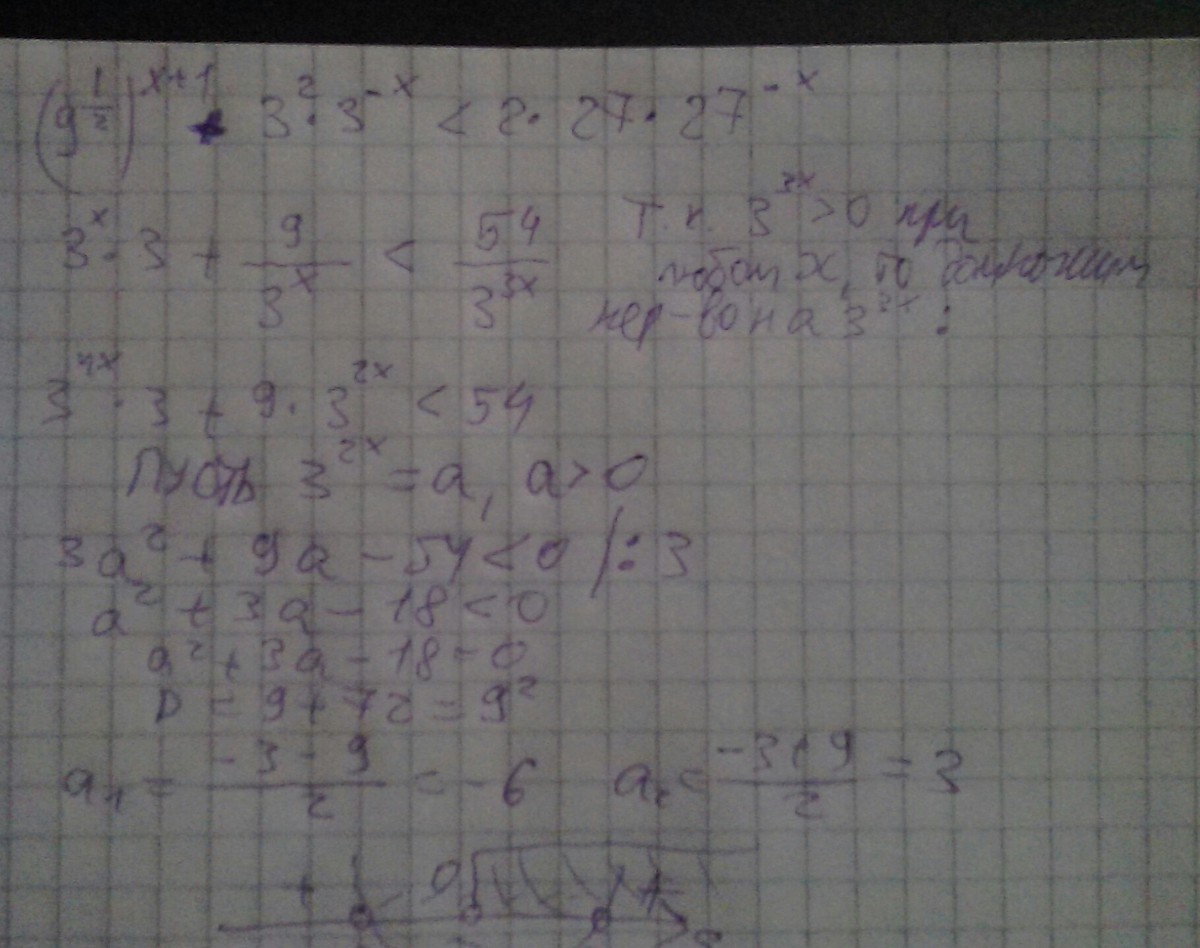 (9^{1/2})^{x+1} + 3^2 · 3^{-x} < 2 · 27 · 27^{-x}
3^x · 3 + 9/3^x < 54/3^{3x} Т.к. 3^{3x} > 0 при
любом x, то домножим
нер-во на 3^{3x} :
3^{4x} · 3 + 9 · 3^{2x} < 54
Пусть 3^{2x} = a, a > 0
3a^2 + 9a - 54 < 0 /: 3
a^2 + 3a - 18 < 0
a^2 + 3a - 18 = 0
D = 9 + 72 = 9^2
a_1 = (-3 - 9)/2 = -6 a_2 = (-3 + 9)/2 = 3
+ - 0 +